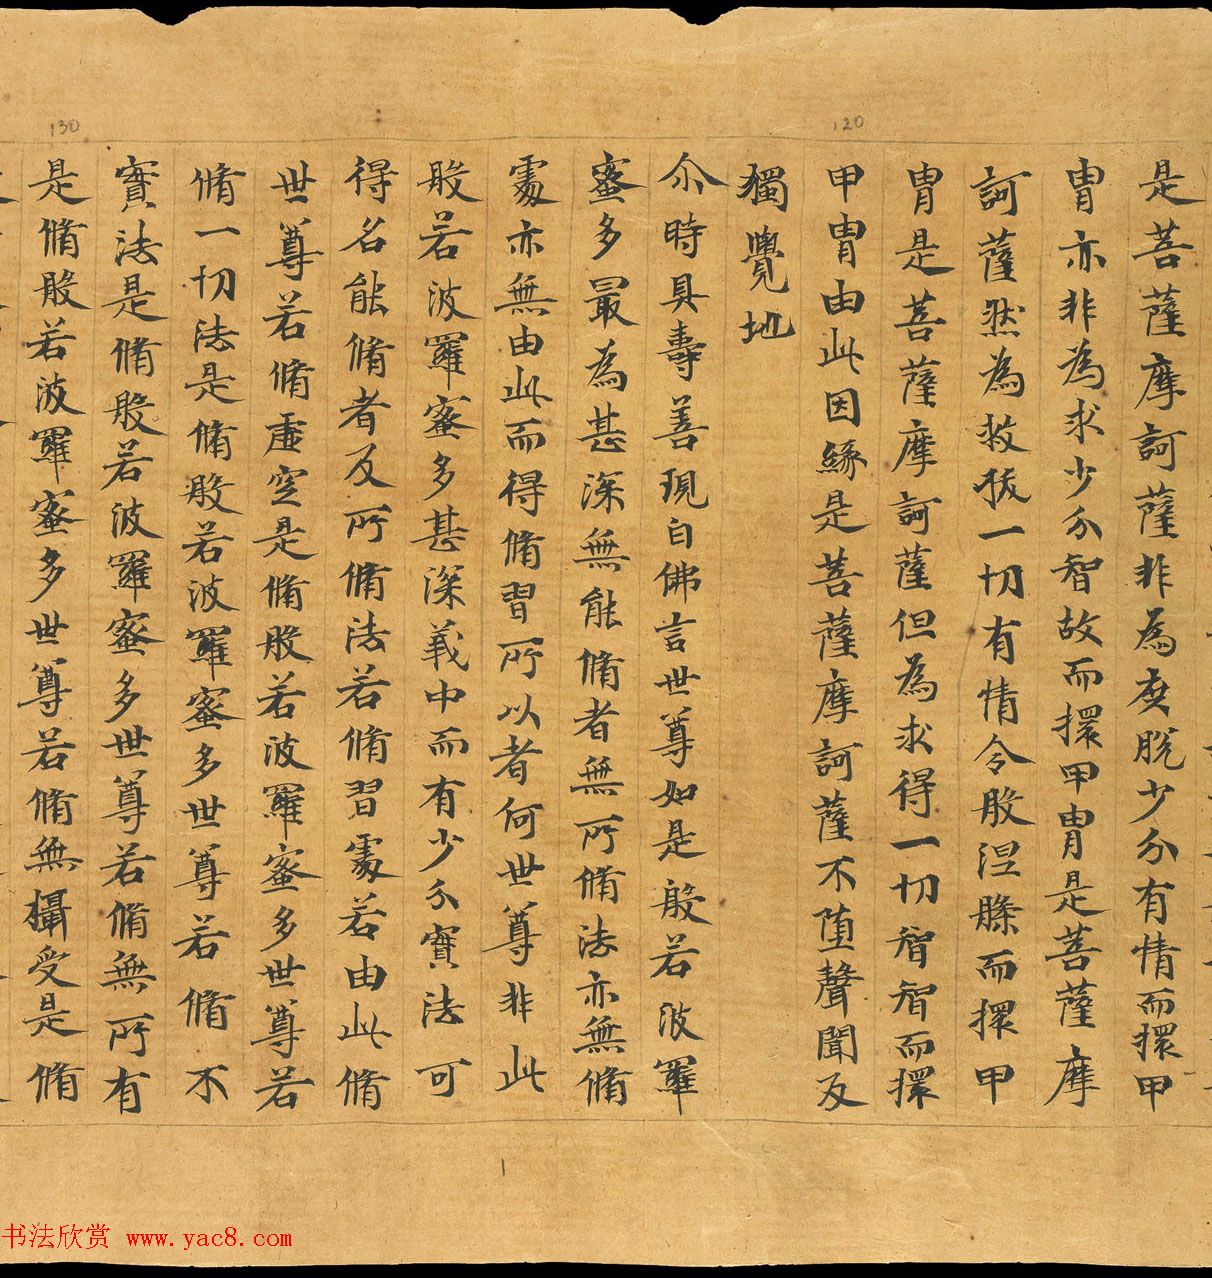 120
130
是菩薩摩訶薩非為度脫少分有情而擐甲
冑亦非為求少分智故而擐甲冑是菩薩摩
訶薩然為救拔一切有情令般涅槃而擐甲
冑是菩薩摩訶薩但為求得一切智智而擐
甲冑由此因緣是菩薩摩訶薩不墮聲聞及
獨覺地
尒時具壽善現白佛言世尊如是般若波羅
蜜多最為甚深無能脩者無所脩法亦無脩
處亦無由此而得脩習所以者何世尊非此
般若波羅蜜多甚深義中而有少分實法可
得名能脩者及所脩法若脩習處若由此脩
世尊若脩虛空是脩般若波羅蜜多世尊若
脩一切法是脩般若波羅蜜多世尊若脩不
實法是脩般若波羅蜜多世尊若脩無所有
是脩般若波羅蜜多世尊若脩無攝受是脩
书法欣赏 www.yac8.com